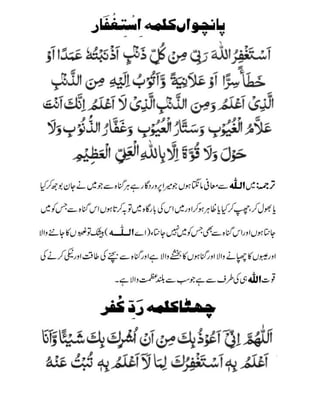 پانچواں کلمہ اِسْتِغْفَار
اَسْتَغْفِرُ اللّٰهَ رَبِّىْ مِنْ كُلِّ ذَنْۢبٍ اَذْنَبْتُهٗ عَمَدًا اَوْ
خَطَأً سِرًّا اَوْ عَلَانِيَةً وَّاَتُوْبُ اِلَيْهِ مِنَ الذَّنْۢبِ
الَّذِىْۤ اَعْلَمُ وَمِنَ الذَّنْۢبِ الَّذِىْ لَاۤ اَعْلَمُ اِنَّكَ اَنْتَ
عَلَّامُ الْغُيُوْبِ وَسَتَّارُ الْعُيُوْبِ وَغَفَّارُ الذُّنُوْبِ وَلَا
حَوْلَ وَلَا قُوَّةَ اِلَّا بِاللّٰهِ الْعَلِىِّ الْعَظِيْمِ
ترجمہ: میں اللہ سے معافی مانگتا ہوں جو میرا پروردگار ہے ہر گناہ سے جو میں نے جان بوجھ کر کیا
یا بھول کر، چھپ کر کیا یا ظاہر ہو کر اور میں اس کی بارگاہ میں توبہ کرتا ہوں اس گناہ سے جس کو میں
جانتا ہوں اور اس گناہ سے بھی جس کو میں نہیں جانتا، (اے اللہ) بیشک تو غیبوں کا جاننے والا
اور عیبوں کا چھپانے والا اور گناہوں کا بخشنے والا ہے اور گناہ سے بچنے کی طاقت اور نیکی کرنے کی
قوت اللہ ہی کی طرف سے ہے جو سب سے بلند عظمت والا ہے۔
چھٹا کلمہ رَدِّ کُفر
اَللّٰهُمَّ اِنِّىْۤ اَعُوْذُ بِكَ مِنْ اَنْ اُشْرِكَ بِكَ شَيْئًا وَّاَنَا
اَعْلَمُ بِهٖ وَاَسْتَغْفِرُكَ لِمَا لَاۤ اَعْلَمُ بِهٖ تُبْتُ عَنْهُ